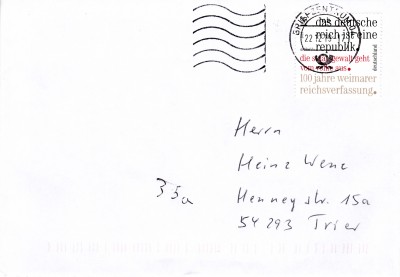 das deutsche
reich ist eine
republik.
die staatsgewalt geht
vom volke aus.
100 jahre weimarer
reichsverfassung.
deutschland
BRIEFZENTRUM
22.12.19
Herrn
Heinz Wenz
35a
Henneystr. 15a
54293 Trier